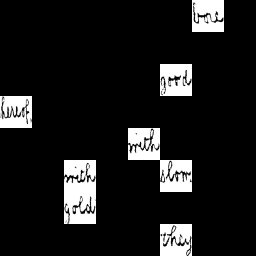 good
hereof.
with
with slow.
gold
they